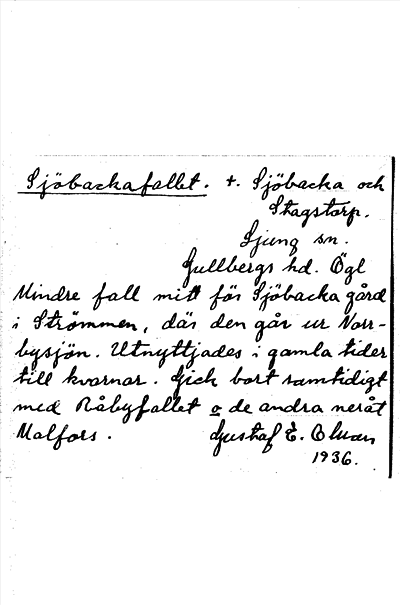 Sjöbackafallet. t. Sjöbacka och
Stagstorp.
Ljung sn.
Gullbergs hd. Ögl
Mindre fall mitt för Sjöbacka gård
i Strömmen, där den går ur Norr-
bysjön. Utnyttjades i gamla tider
till kvarnar. Gick bort samtidigt
med Råbyfallet o de andra neråt
Malfors. Gustaf E. Olson
1936.